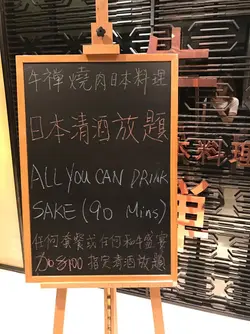 牛禪燒肉日本料理
日本清酒放題
ALL YOU CAN DRINK
SAKE (90 Mins)
任何套餐或任何和牛盛宴
加$100 指定清酒放題
料理